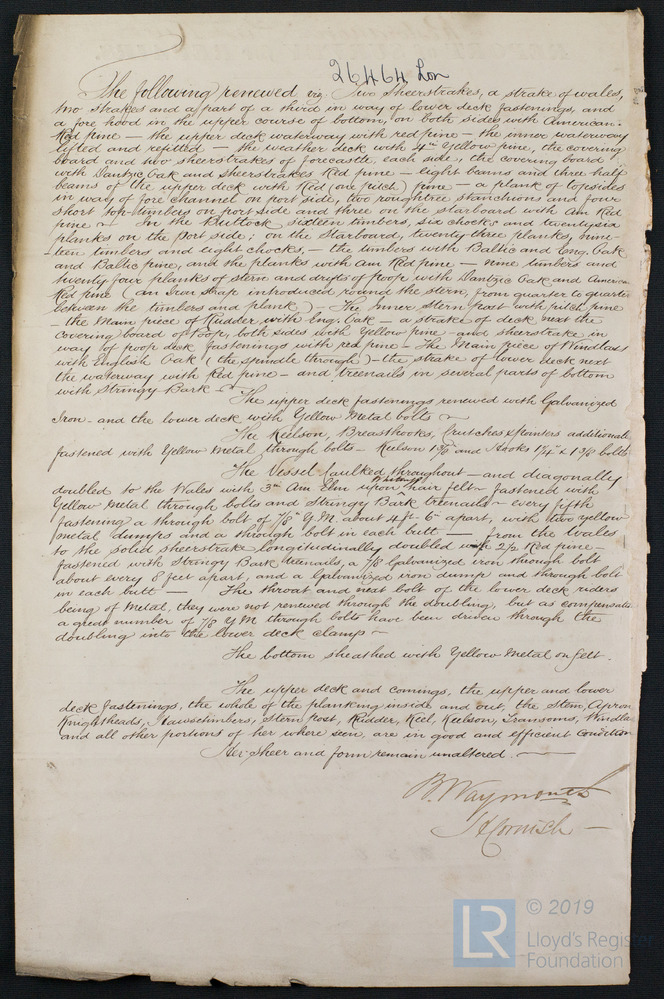 26464 Lon
The following renewed viz. Two Sheerstrakes, a strake of wales,
two strakes and a part of a third in way of lower deck fastenings, and
a fore hood in the upper course of bottom, on both sides with American
Red pine — the upper deck waterway with red pine — the inner waterway
lifted and refitted — the weather deck with 4in Yellow pine, the covering
board and two sheerstrakes of forecastle each side, the covering board
with Dantzic Oak and sheerstrakes Red pine — eight beams and three half
beams of the upper deck with Red (one pitch) pine — a plank of topsides
in way of fore channel on port side, two roughtree stanchions and four
short top-timbers on port side and three on the starboard with Am Red
pine — In the Buttock sixteen timbers, six chocks and twentysix
planks on the Port side; on the Starboard, twenty three planks, nine-
teen timbers and eight chocks, — the timbers with Baltic and Eng. Oak
and Baltic pine, and the planks with Am Red pine — nine timbers and
twenty four planks of stern and drifts of poop with Dantzic Oak and America
Red pine (an Iron Strap introduced round the stern, from quarter to quarter
between the timbers and plank) — The Inner Stern post with pitch pine
— the Main piece of Rudder with Eng Oak — a strake of deck next the
covering board of Poop, both sides with Yellow pine — and sheerstrake in
way of poop deck fastenings with red pine — The Main piece of Windlass
with English Oak (the spindle through) — the strake of lower deck next
the waterway with Red pine — and treenails in several parts of bottom
with Stringy Bark —
The upper deck fastenings renewed with Galvanized
Iron — and the lower deck with Yellow Metal bolts —
The Keelson, Breasthooks, Crutches & pointers additionally
fastened with Yellow Metal through bolts — Keelson 1 3/8 and Hooks 1 1/4 & 1 1/8 bolts
The Vessel Caulked throughout — and diagonally
doubled to the Wales with 3in Am Elm upon hair felt — fastened with
Yellow Metal through bolts and Stringy Bark treenails — every fifth
fastening a through bolt of 7/8 Y.M. about 4ft 6in apart, with two yellow
metal dumps and a through bolt in each butt — from the Wales
to the solid sheerstrake longitudinally doubled with 2 1/2 Red pine —
fastened with Stringy Bark treenails, a 7/8 Galvanized iron through bolt
about every 8 feet apart, and a Galvanized iron dump and through bolt
in each butt — The throat and next bolt of the lower deck riders
being of Metal, they were not renewed through the doubling, but as compensation
a great number of 7/8 Y M through bolts have been driven through the
doubling into the lower deck clamps —
The bottom sheathed with Yellow Metal on felt.
The upper deck and comings, the upper and lower
deck fastenings, the whole of the planking inside and out, the Stem, Apron
Knightheads, Hawsetimbers, Stern post, Rudder, Keel, Keelson, Transoms, Windlass
and all other portions of her where seen, are in good and efficient Condition
Her Sheer and form remain unaltered. —
B. Waymouth
Cornish —
LR
© 2019
Lloyd's Register
Foundation